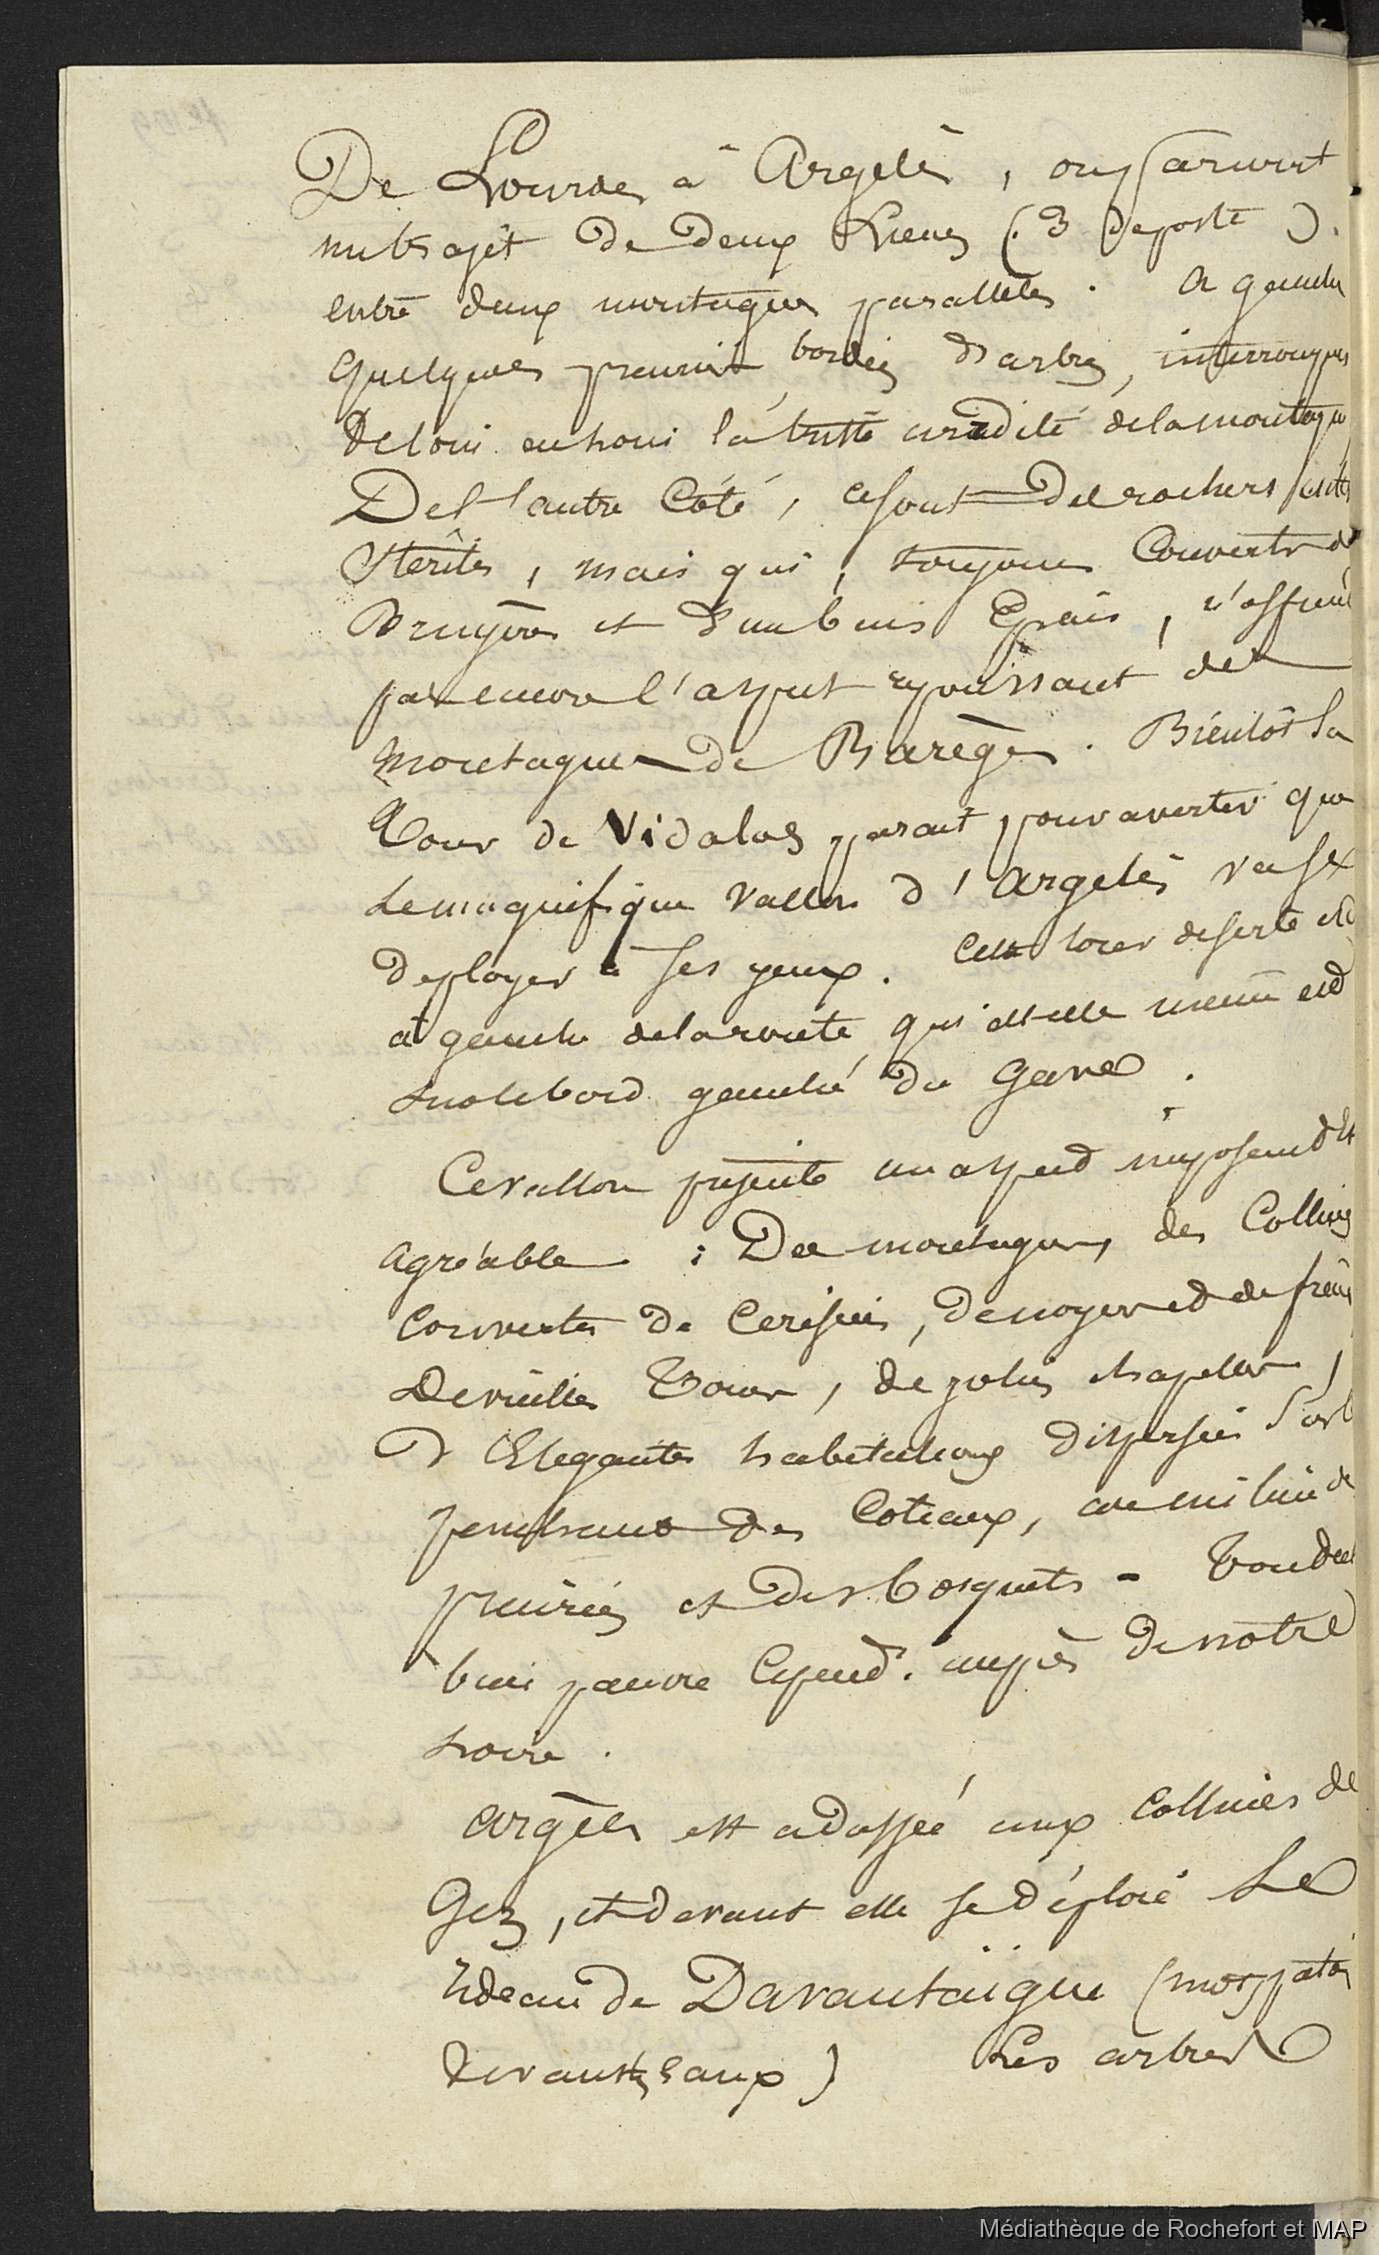 De Lourdes à Argelès, on parcourt
un trajet de deux Lieues (3 de poste).
entre deux montagnes paralleles. A gauche
quelques prairies bordées d'arbres, interrompes
De loin en loin la triste aridité de la montagne
De l'autre Côté, ce sont des rochers
Stériles, mais qui, toujours Couverts de
Bruyères et d'un buis Epais, n'offrent
pas encore l'aspect repoussant des
montagnes de Barèges. Bientôt la
Tour de Vidalos parait pour avertir que
Le magnifique Vallon d'Argelès va se
deployer à ses yeux. Cette tour deserte est
à gauche de la route, qui est elle meme est
sur le bord gauche du Gave.
Ce vallon présente un aspect imposant et
agréable : Des montagnes, des Collines
couvertes de Cerisiers, de noyers et de frênes
De vieilles Tours, de jolies chapelles,
D'Elegantes habitations dispersées sur le
penchant des Coteaux, au milieu de
prairies et des bosquets - Tout est
bien pauvre Cepend. auprès de notre
Loire.
Argèles est adossée aux Collines de
Gez, et devant elle se déploie Le
rideau de Davantaïgue (mot patois
devant les eaux) Les arbres
Médiathèque de Rochefort et MAP